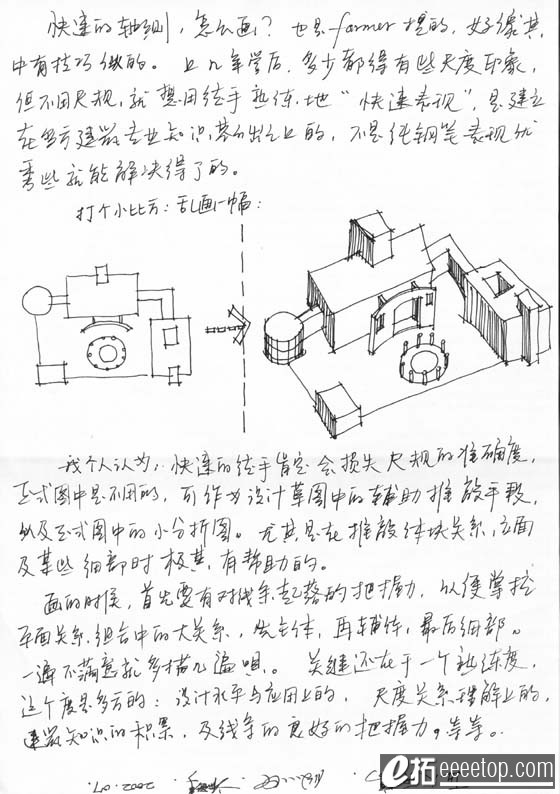 快速的轴测，怎么画？也是farmer提的，好像其
中有技巧似的。上几年学后，多少都得有些尺度印象，
但不用尺规，就想用徒手熟练地“快速表现”，是建立
在多方建筑专业知识基础之上的，不是纯钢笔表现优
秀些就能解决得了的。
打个小比方：乱画一幅：
我个人认为，快速的徒手肯定会损失尺规的准确度，
正式图中是不用的，可作为设计草图中的辅助推敲手段，
以及正式图中的小分析图。尤其是在推敲体块关系，立面
及某些细部时极其有帮助的。
画的时候，首先要有对线条起落的把握力，以便掌控
平面关系，组合中的大关系，先主体，再辅体，最后细部。
一遍不满意就多描几遍呗。关键还在于一个熟练度，
这个度是多方的：设计水平与应用上的，尺度关系理解上的，
建筑知识的积累，及线条的良好的把握力。等等。
2002.07.
e拓 eeeetop.com